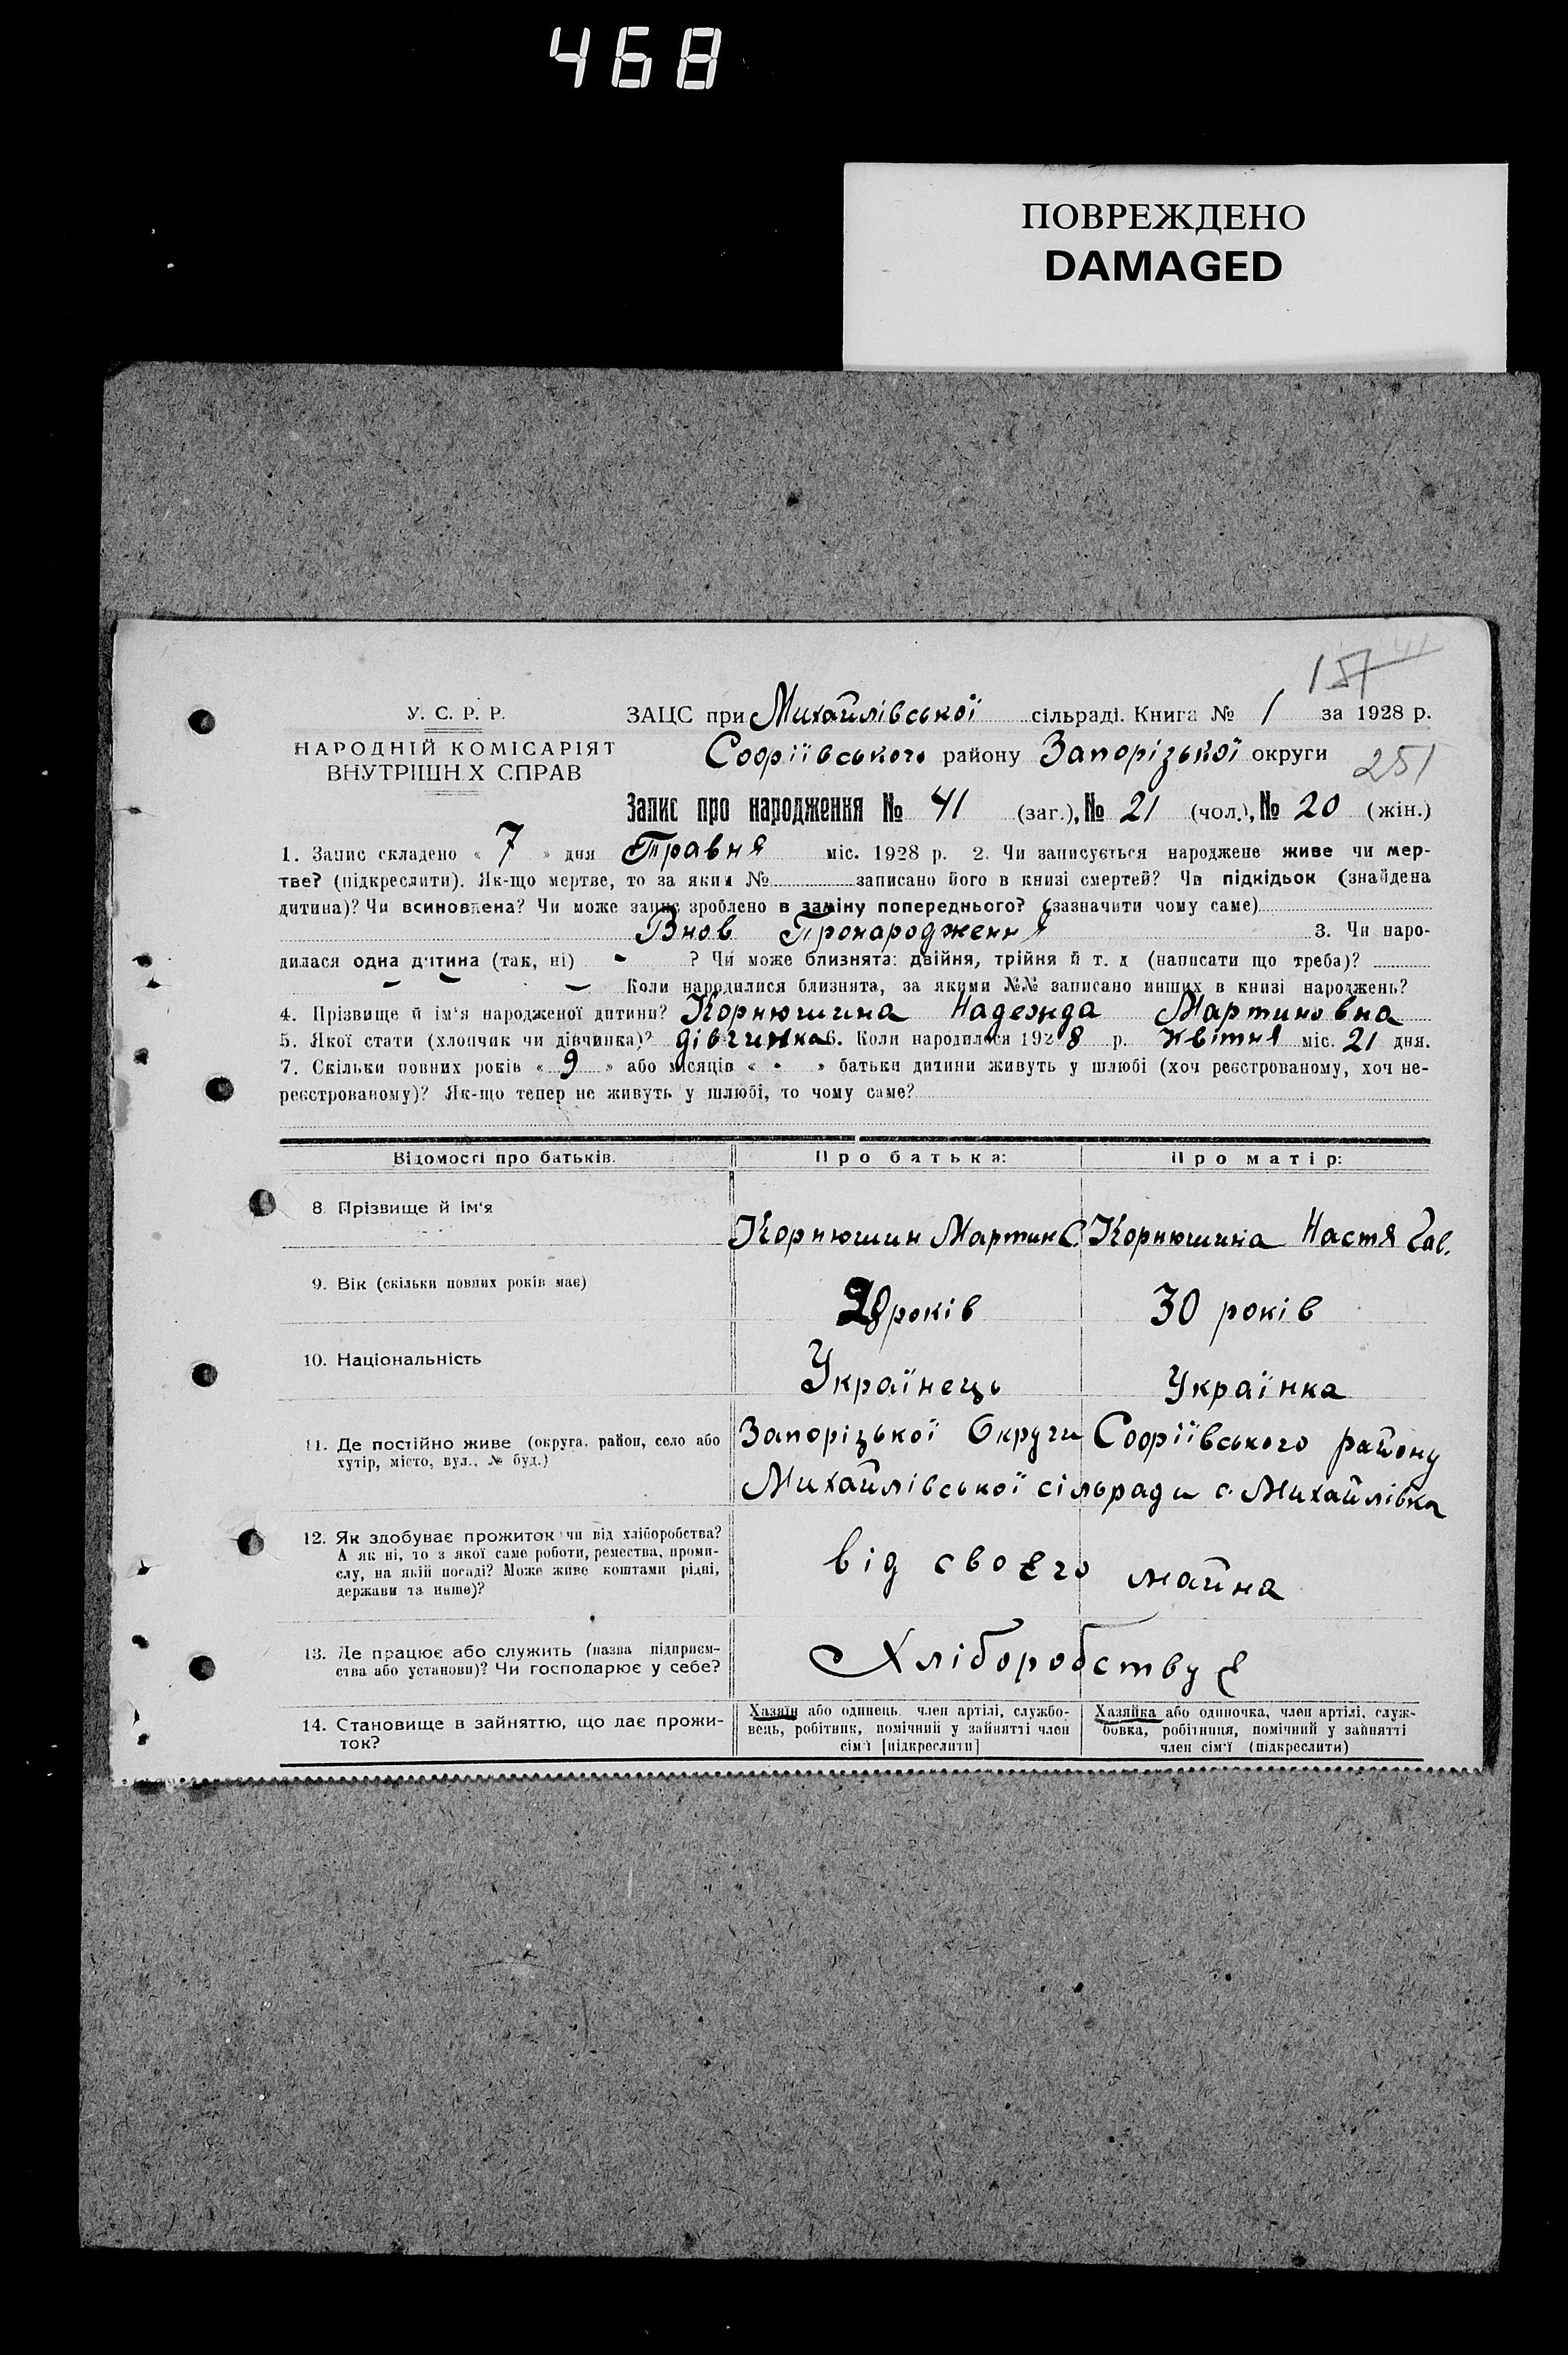 468
ПОВРЕЖДЕНО
DAMAGED
41
157
У. С. Р. Р.
НАРОДНІЙ КОМІСАРІЯТ
ВНУТРІШН Х СПРАВ
ЗАЦС при Михайлівської сільраді. Книга № 1 за 1928 р.
Софіївського району Запорізької округи
251
Запис про народження № 41 (заг.), № 21 (чол.), № 20 (жін.)
1. Запис складено « 7 » дня Травня міс. 1928 р. 2. Чи записується народжене живе чи мер-
тве? (підкреслити). Як-що мертве, то за яким № записано його в книзі смертей? Чи підкідьок (знайдена
дитина)? Чи всиновлена? Чи може запис зроблено в заміну попереднього? (зазначити чому саме)
Внов Пронародження 3. Чи наро-
дилася одна дитина (так, ні) - ? Чи може близнята: двійня, трійня й т. д (написати що треба)?
- - - Коли народилися близнята, за якими №№ записано инших в книзі народжень?
4. Прізвище й ім'я народженої дитини? Корнюшина Надежда Мартиновна
5. Якої стати (хлопчик чи дівчинка)? дівчинка 6. Коли народилася 1928 р. Квітня міс. 21 дня.
7. Скільки повних років « 9 » або місяців « - » батьки дитини живуть у шлюбі (хоч реєстрованому, хоч не-
реєстрованому)? Як-що тепер не живуть у шлюбі, то чому саме?
Відомості про батьків.
Про батька:
Про матір:
8. Прізвище й ім'я
Корнюшин Мартин С.
Корнюшина Настя Гав.
9. Вік (скільки повних років має)
28 років
30 років
10. Національність
Українець
Українка
11. Де постійно живе (округа, район, село або
хутір, місто, вул., № буд.)
Запорізької Округи Софіївського району
Михайлівської сільради с. Михайлівка
12. Як здобуває прожиток чи від хліборобства?
А як ні, то з якої саме роботи, ремества, проми-
слу, на якій посаді? Може живе коштами рідні,
держави та инше)?
від своєго майна
13. Де працює або служить (назва підприєм-
ства або установи)? Чи господарює у себе?
Хліборобствує
14. Становище в зайняттю, що дає прожи-
ток?
Хазяїн або одинець, член артілі, службо-
вець, робітник, помічний у зайнятті член
сім'ї [підкреслити]
Хазяйка або одиночка, член артілі, служ-
бовка, робітниця, помічний у зайнятті
член сім'ї (підкреслити)